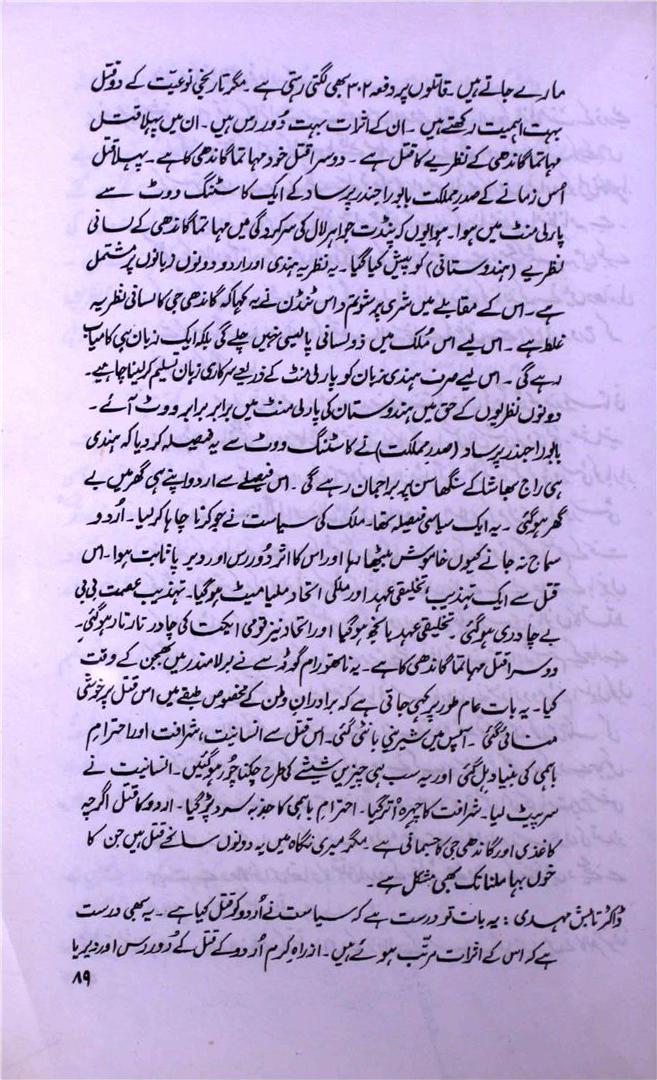 مارے جاتے ہیں۔ قاتلوں پر دفعہ ۳۰۲ بھی لگتی رہتی ہے۔ مگر تاریخی نوعیت کے دو قتل
بہت اہمیت رکھتے ہیں۔ ان کے اثرات بہت دُور رس ہیں۔ ان میں پہلا قتل
مہاتما گاندھی کے نظریے کا قتل ہے۔ دوسرا قتل خود مہاتما گاندھی کا ہے۔ پہلا قتل
اُس زمانے کے صدر مملکت بابو راجندر پرساد کے ایک کاسٹنگ ووٹ سے
پارلی منٹ میں ہوا۔ ہوا یوں کہ پنڈت جواہر لال کی سرکردگی میں مہاتما گاندھی کے لسانی
نظریے (ہندوستانی) کو پیش کیا گیا۔ یہ نظریہ ہندی اور اردو دونوں زبانوں پر مشتمل
ہے۔ اس کے مقابلے میں شری پرشوتم داس ٹنڈن نے یہ کہا کہ گاندھی جی کا لسانی نظریہ
غلط ہے۔ اس لیے اس مُلک میں ذولسانی پالیسی نہیں چلے گی بلکہ ایک زبان ہی کامیاب
رہے گی۔ اس لیے صرف ہندی زبان کو پارلی منٹ کے ذریعے سرکاری زبان تسلیم کر لینا چاہیے۔
دونوں نظریوں کے حق میں ہندوستان کی پارلی منٹ میں برابر برابر ووٹ آئے۔
بابو راجندر پرساد (صدر مملکت) نے کاسٹنگ ووٹ سے یہ فیصلہ کر دیا کہ ہندی
ہی راج بھاشا کے سنگھاسن پر براجمان رہے گی۔ اس فیصلے سے اردو اپنے ہی گھر میں بے
گھر ہو گئی۔ یہ ایک سیاسی فیصلہ تھا۔ ملک کی سیاست نے جو کرنا چاہا کر لیا۔ اُردو
سماج نہ جانے کیوں خاموش بیٹھا رہا اور اس کا اثر دُور رس اور دیر پا ثابت ہوا۔ اس
قتل سے ایک تہذیب، تخلیقی عہد اور ملکی اتحاد ملیامیٹ ہو گیا۔ تہذیب عصمت بی بی
بے چادری ہو گئی۔ تخلیقی عہد بانجھ ہو گیا اور اتحاد نیز قومی ایکتا کی چادر تار تار ہو گئی۔
دوسرا قتل مہاتما گاندھی کا ہے۔ یہ ناتھو رام گوڈسے نے برلا مندر میں بھجن کے وقت
کیا۔ یہ بات عام طور پر کہی جاتی ہے کہ برادرانِ وطن کے مخصوص طبقے میں اس قتل پر خوشی
منائی گئی۔ آپس میں شیرینی بانٹی گئی۔ اس قتل سے انسانیت، شرافت اور احترامِ
باہمی کی بنیاد ہل گئی اور یہ سب ہی چیزیں شیشے کی طرح چکنا چُور ہو گئیں۔ انسانیت نے
سر پیٹ لیا۔ شرافت کا چہرہ اُتر گیا۔ احترام باہمی کا جذبہ سرد پڑ گیا۔ اردو کا قتل اگرچہ
کاغذی اور گاندھی جی کا جسمانی ہے۔ مگر میری نگاہ میں یہ دونوں سانحے قتل ہیں جن کا
خوں بہا ملنا تک بھی مشکل ہے۔
ڈاکٹر تابش مہدی: یہ بات تو درست ہے کہ سیاست نے اُردو کو قتل کیا ہے۔ یہ بھی درست
ہے کہ اس کے اثرات مرتّب ہوئے ہیں۔ از راہِ کرم اُردو کے قتل کے دُور رس اور دیر پا
۸۹